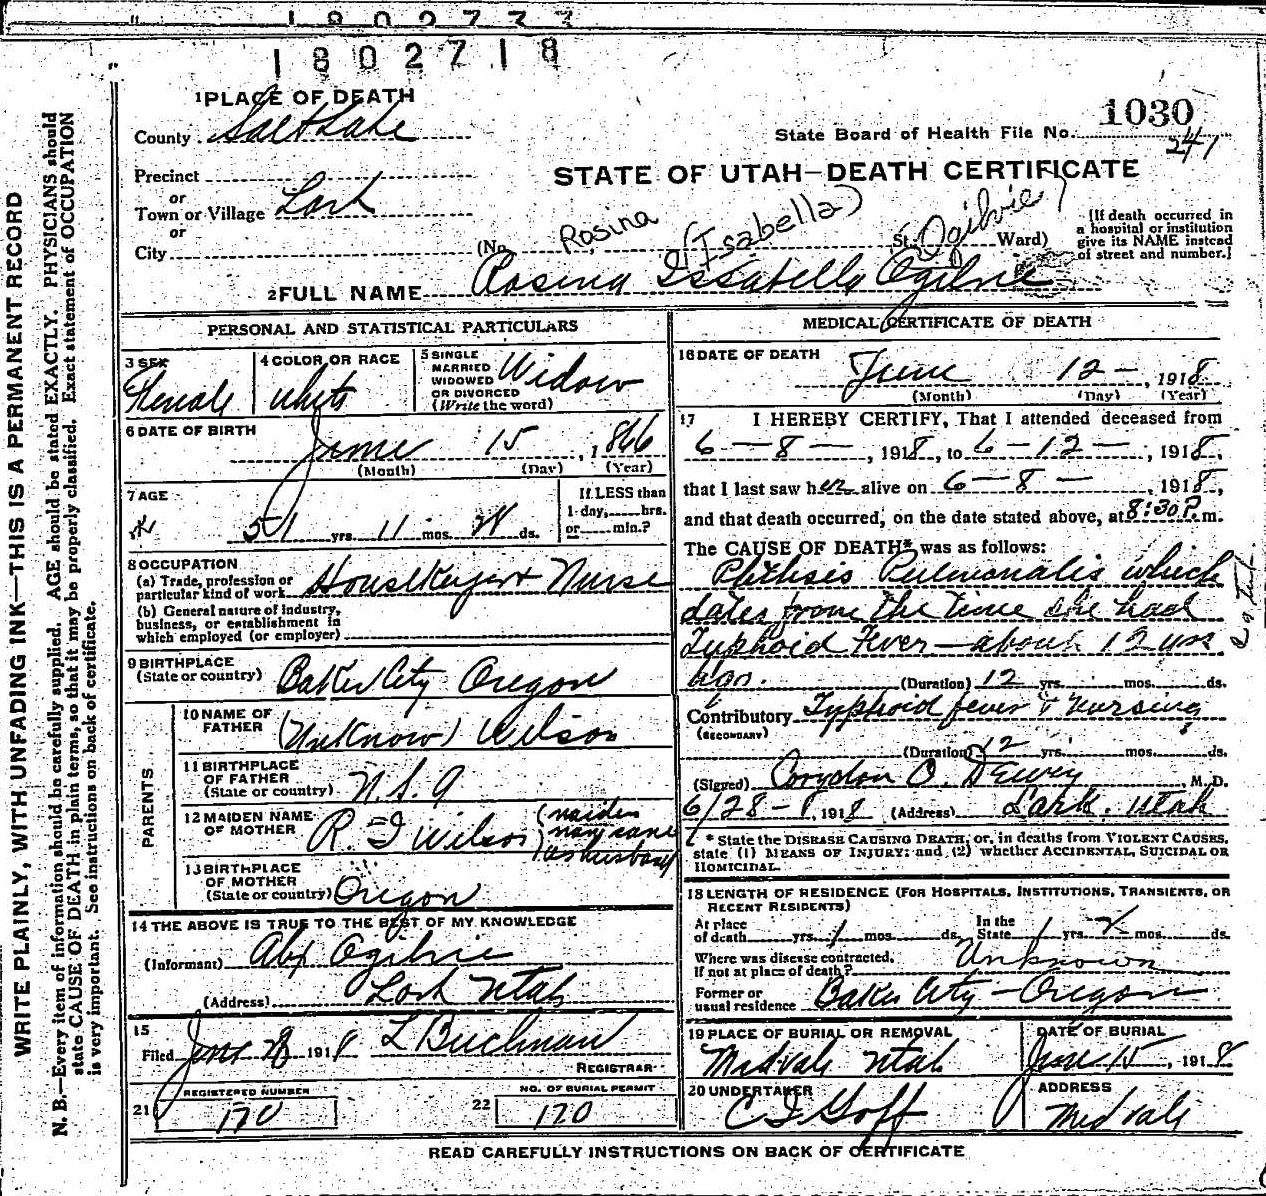 1802733
1802718
1 PLACE OF DEATH
County Salt Lake
Precinct
or
Town or Village Lark
or
City
1030
State Board of Health File No.
241
STATE OF UTAH—DEATH CERTIFICATE
(No. St. Ward)
Rosina (Isabella) Ogilvie
[If death occurred in
a hospital or institution
give its NAME instead
of street and number.]
2 FULL NAME Rosina Issabella Ogilvie
PERSONAL AND STATISTICAL PARTICULARS
3 SEX Female
4 COLOR OR RACE White
5 SINGLE
MARRIED
WIDOWED
OR DIVORCED
(Write the word)
Widow
6 DATE OF BIRTH
June 15, 1866
(Month) (Day) (Year)
7 AGE
51 yrs. 11 mos. ds.
If LESS than
1 day, hrs.
or min.?
8 OCCUPATION
(a) Trade, profession or
particular kind of work Housekeeper & Nurse
(b) General nature of industry,
business, or establishment in
which employed (or employer)
9 BIRTHPLACE
(State or country) Baker City Oregon
PARENTS.
10 NAME OF
FATHER (Unknow) Wilson
11 BIRTHPLACE
OF FATHER
(State or country)
12 MAIDEN NAME
OF MOTHER R. I Wilson (maiden
name same
as husband)
13 BIRTHPLACE
OF MOTHER
(State or country) Oregon
14 THE ABOVE IS TRUE TO THE BEST OF MY KNOWLEDGE
(Informant) Alex Ogilvie
(Address) Lark Utah
15
Filed June 28 1918 L Buchman
REGISTRAR
21 REGISTERED NUMBER
170
22 NO. OF BURIAL PERMIT
170
MEDICAL CERTIFICATE OF DEATH
16 DATE OF DEATH
June 12 —, 1918
(Month) (Day) (Year)
17 I HEREBY CERTIFY, That I attended deceased from
6 — 8 —, 1918, to 6 — 12 —, 1918,
that I last saw her alive on 6 — 8 —, 1918,
and that death occurred, on the date stated above, at 8:30 P. m.
The CAUSE OF DEATH* was as follows:
Phthsis Pulmonalis which
dates from the time she had
Typhoid Fever — about 12 yrs
ago. (Duration) 12 yrs. mos. ds.
Contributory Typhoid fever & Nursing
(SECONDARY)
(Duration) 12 yrs. mos. ds.
(Signed) Corydon O. Dewey M.D.
6/28 — 1918 (Address) Lark, Utah
* State the DISEASE CAUSING DEATH, or, in deaths from VIOLENT CAUSES,
state (1) MEANS OF INJURY; and (2) whether ACCIDENTAL, SUICIDAL OR
HOMICIDAL.
18 LENGTH OF RESIDENCE (FOR HOSPITALS, INSTITUTIONS, TRANSIENTS, OR
RECENT RESIDENTS)
At place
of death yrs. 1 mos. ds.
In the
State 1 yrs. 2 mos. ds.
Where was disease contracted,
if not at place of death? Unknown
Former or
usual residence Baker City — Oregon
19 PLACE OF BURIAL OR REMOVAL
Midvale Utah
DATE OF BURIAL
June 15, 1918
20 UNDERTAKER
C I Goff
ADDRESS
Midvale
READ CAREFULLY INSTRUCTIONS ON BACK OF CERTIFICATE
WRITE PLAINLY, WITH UNFADING INK—THIS IS A PERMANENT RECORD
N. B.—Every item of information should be carefully supplied. AGE should be stated EXACTLY. PHYSICIANS should
state CAUSE OF DEATH in plain terms, so that it may be properly classified. Exact statement of OCCUPATION
is very important. See instructions on back of certificate.